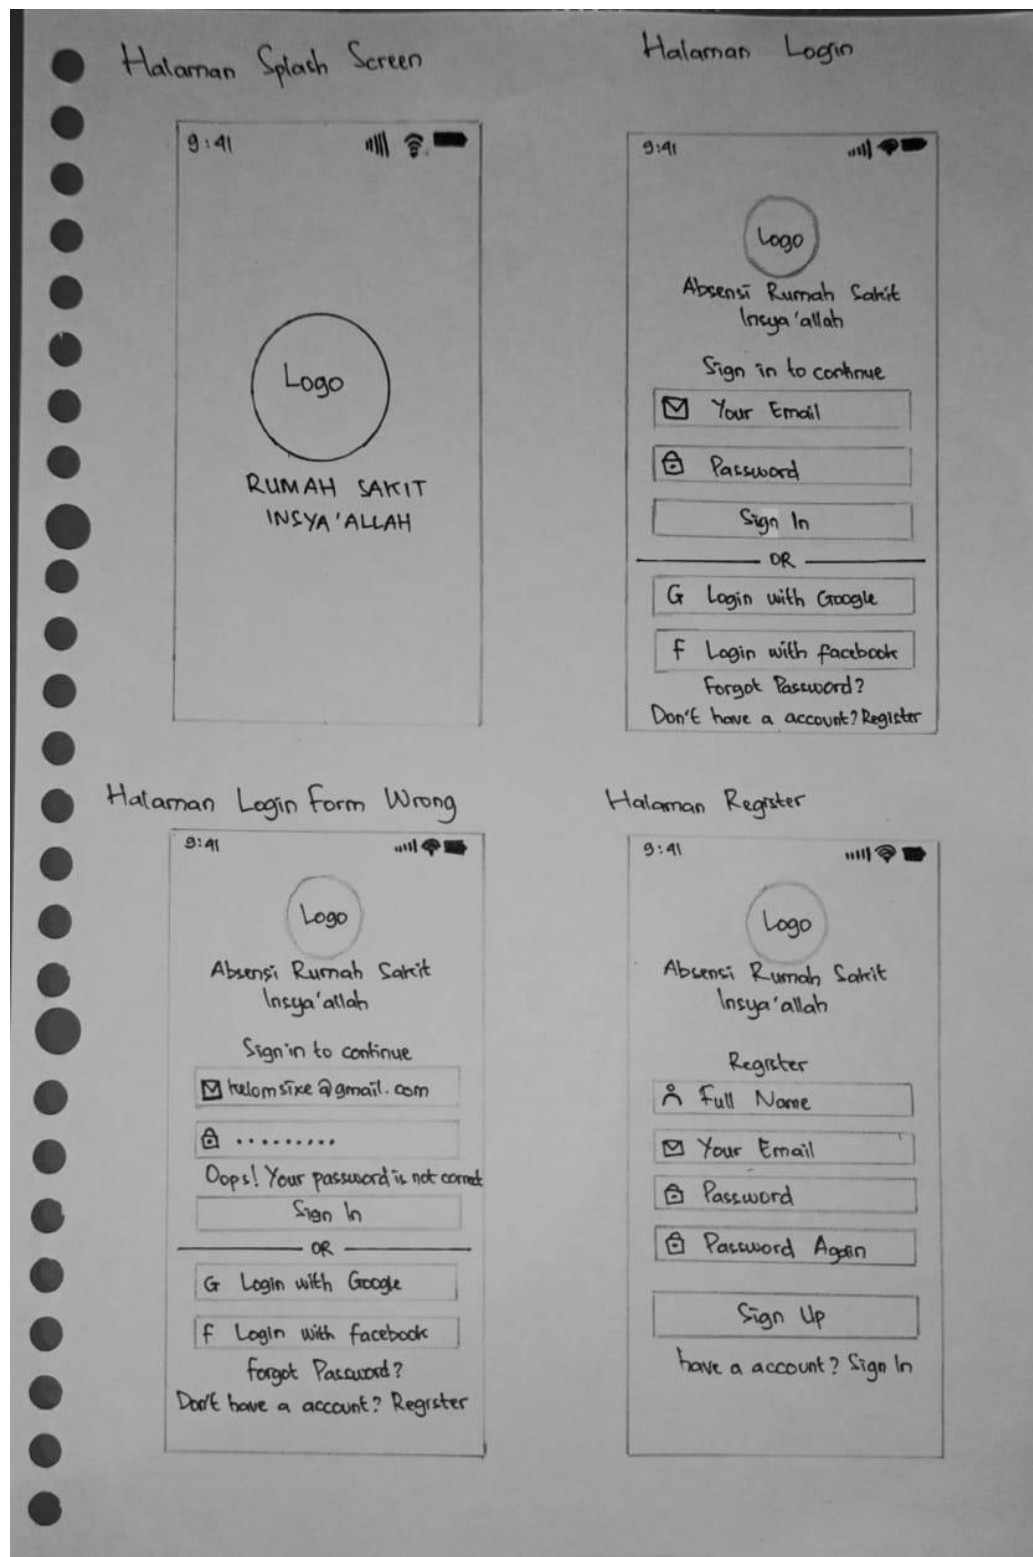 Halaman Splash Screen
9:41
Logo
RUMAH SAKIT
INSYA'ALLAH
Halaman Login
9:41
Logo
Absensi Rumah Sakit
Insya'allah
Sign in to continue
Your Email
Password
Sign In
OR
G Login with Google
f Login with facebook
Forgot Password?
Don't have a account? Register
Halaman Login Form Wrong
9:41
Logo
Absensi Rumah Sakit
Insya'allah
Sign in to continue
helomsixe@gmail.com
.........
Oops! Your password is not correct
Sign In
OR
G Login with Google
f Login with facebook
Forgot Password?
Don't have a account? Register
Halaman Register
9:41
Logo
Absensi Rumah Sakit
Insya'allah
Register
Full Name
Your Email
Password
Password Again
Sign Up
have a account? Sign In